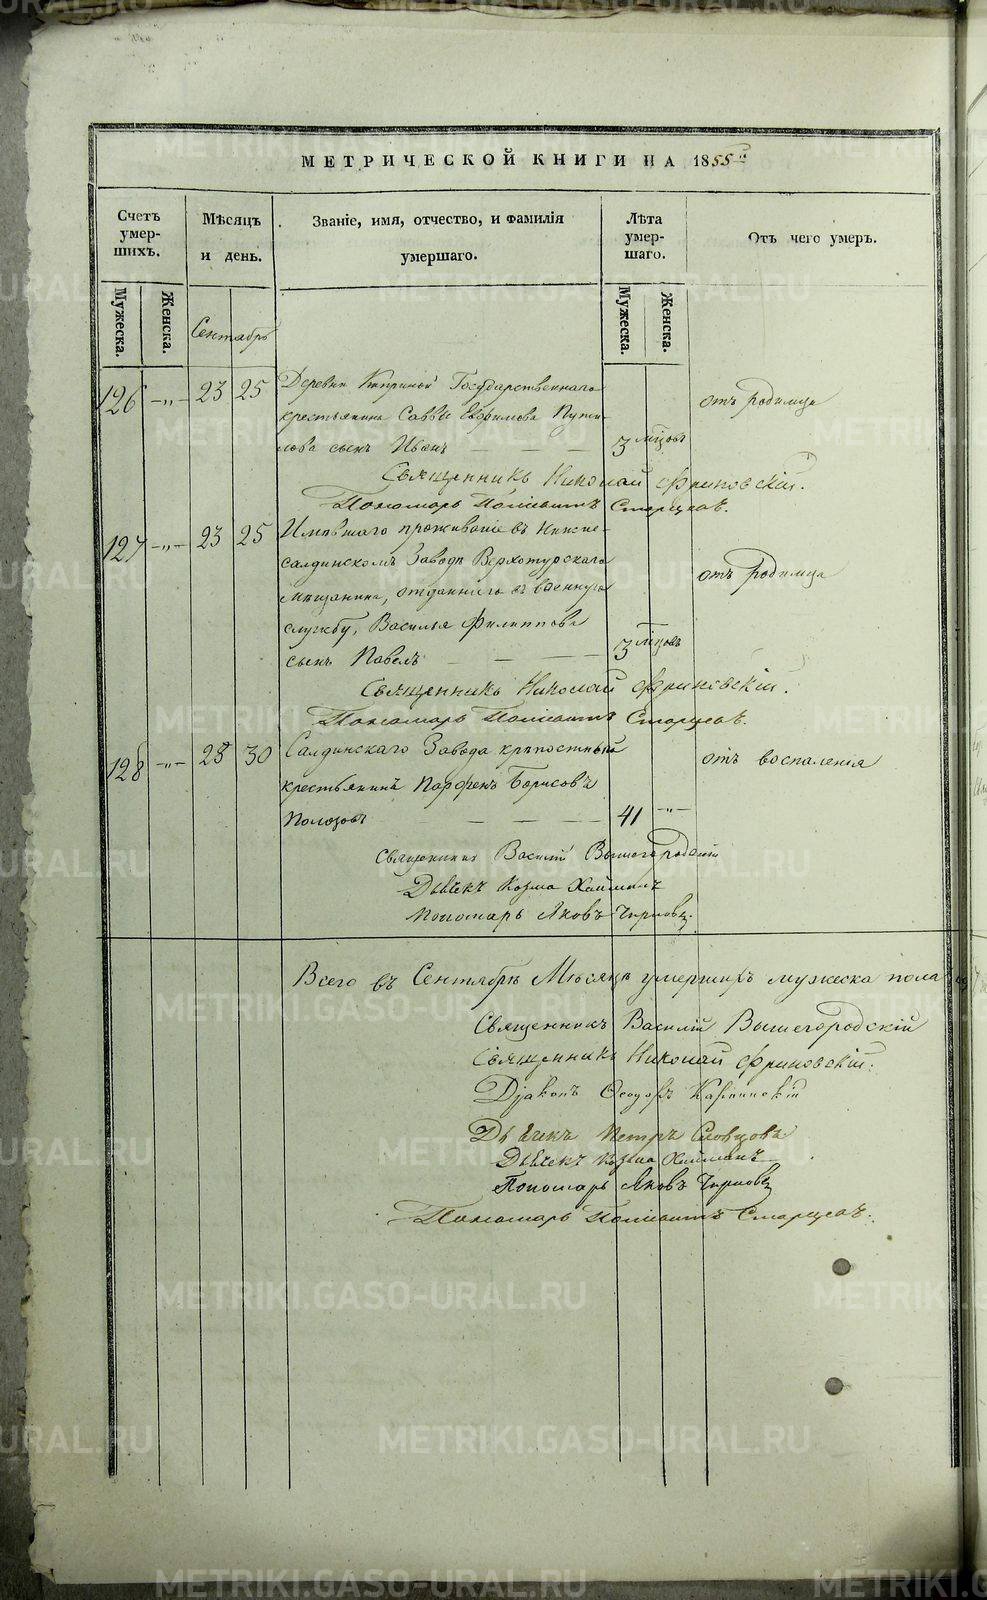 МЕТРИЧЕСКОЙ КНИГИ НА 1855й
Счетъ умершихъ.
Мѣсяцъ и день.
Званіе, имя, отчество, и фамилія умершаго.
Лѣта умершаго.
Отъ чего умеръ.
Мужеска.
Женска.
Сентябрь
Мужеска.
Женска.
126 —"— 23 25 Деревни Государственнаго
крестьянина Саввы Ефимова Пути-
лова сынъ Иванъ — — — 3 мѣсцовъ
отъ родимца
Священникъ Николай Фриновскій.
Пономарь Поліевктъ Старцевъ.
127 —"— 23 25 Имѣвшаго проживаніе въ Нижне-
салдинскомъ Заводѣ Верхотурскаго
мѣщанина, отданнаго въ военную
службу, Василья Филиппова
сынъ Павелъ — — — 3 мѣсцовъ
отъ родимца
Священникъ Николай Фриновскій.
Пономарь Поліевктъ Старцевъ.
128 —"— 28 30 Салдинскаго Завода крѣпостный
крестьянинъ Парфенъ Борисовъ
Полозовъ — — — — 41 —"—
отъ воспаленія
Священникъ Василій Вышегородскій
Дьячекъ Козма
Пономарь Яковъ
Всего въ Сентябрѣ Мѣсяцѣ умершихъ мужеска пола
Священникъ Василій Вышегородскій
Священникъ Николай Фриновскій.
Діаконъ Ѳеодоръ
Дьячекъ Петръ Словцовъ
Дьячекъ Козма
Пономарь Яковъ
Пономарь Поліевктъ Старцевъ.
METRIKI.GASO-URAL.RU